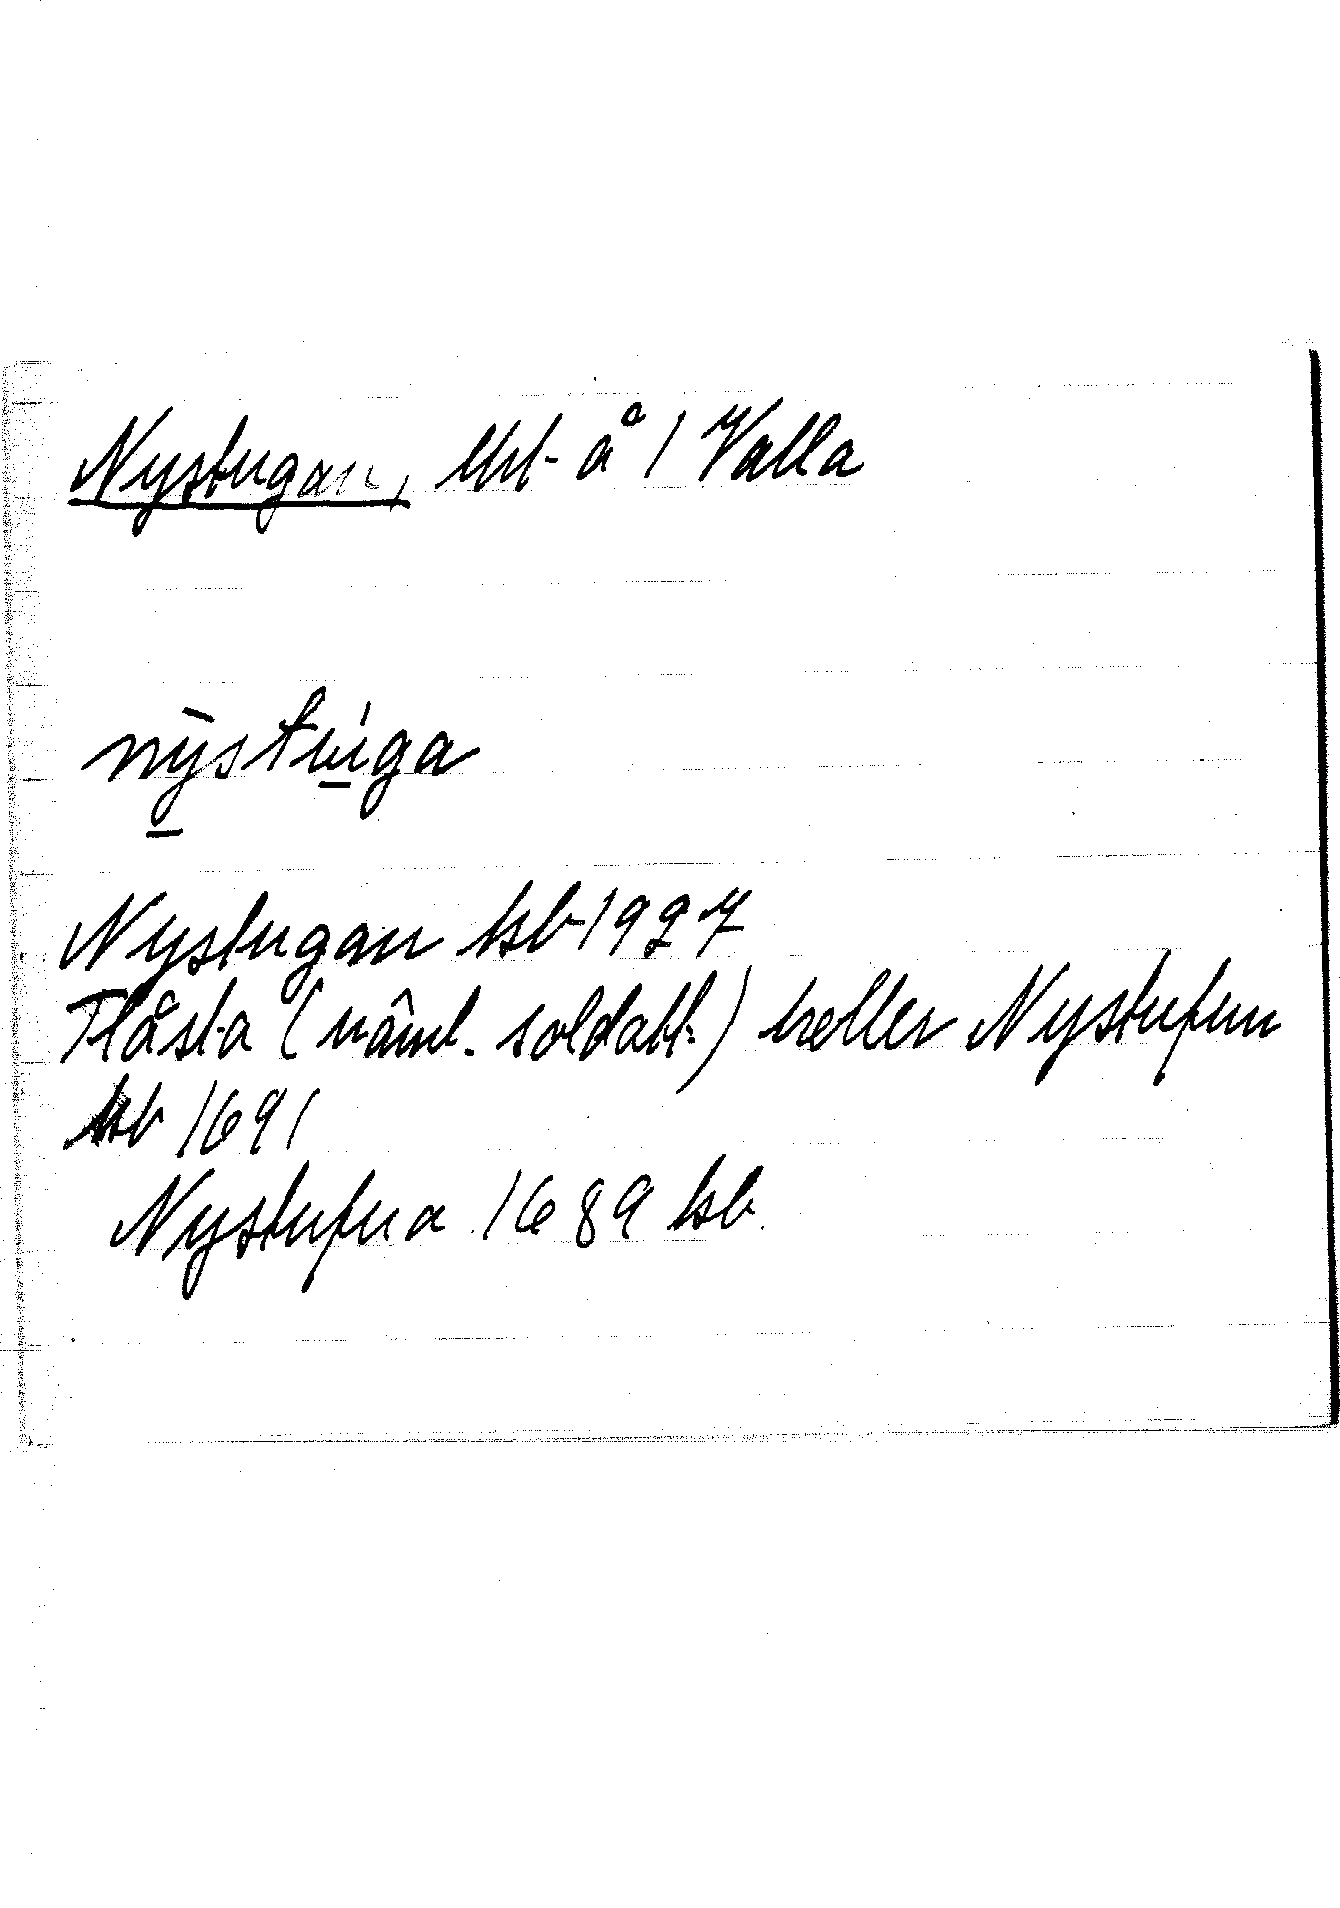 Nystugan, lht å 1 Valla
nystuga
Nystugan kb 1927
Flåsta (näml. soldatt.) heller Nystufun
kb 1691
Nystufua 1689 kb.